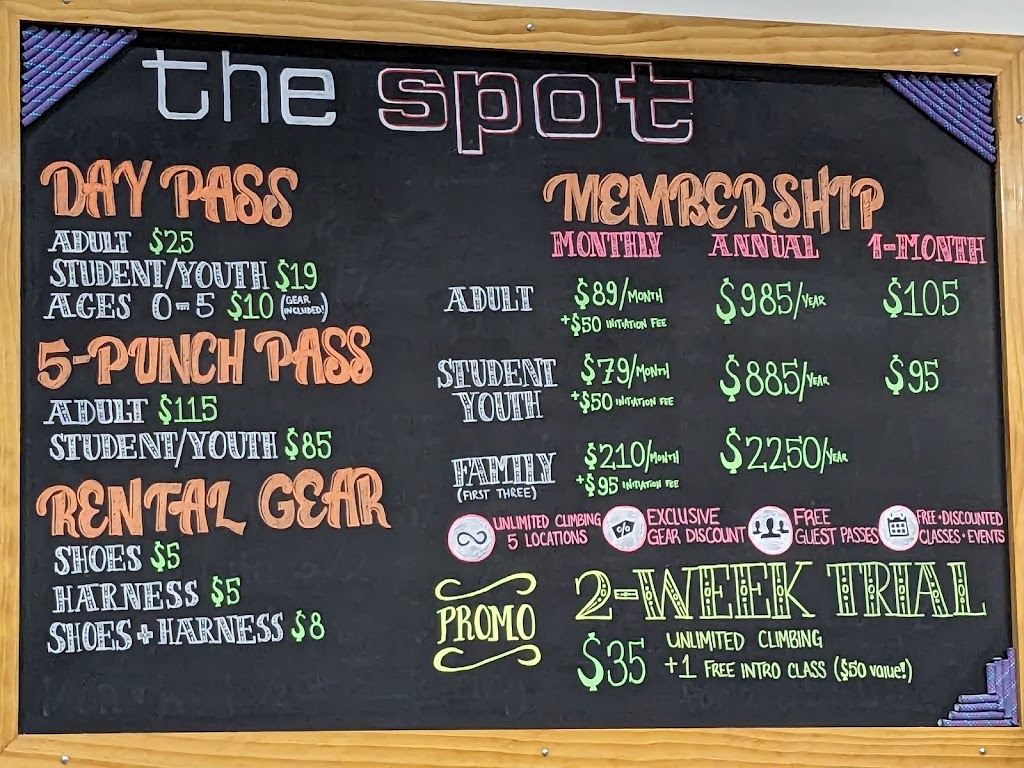 the spot
DAY PASS
ADULT $25
STUDENT/YOUTH $19
AGES 0-5 $10 (GEAR INCLUDED!)
5-PUNCH PASS
ADULT $115
STUDENT/YOUTH $85
RENTAL GEAR
SHOES $5
HARNESS $5
SHOES + HARNESS $8
MEMBERSHIP
MONTHLY ANNUAL 1-MONTH
ADULT $89/MONTH $985/YEAR $105
+$50 INITIATION FEE
STUDENT $79/MONTH $885/YEAR $95
YOUTH +$50 INITIATION FEE
FAMILY $210/MONTH $2250/YEAR
(FIRST THREE) +$95 INITIATION FEE
UNLIMITED CLIMBING
5 LOCATIONS
% EXCLUSIVE
GEAR DISCOUNT
FREE
GUEST PASSES
FREE + DISCOUNTED
CLASSES + EVENTS
PROMO
2-WEEK TRIAL
$35 UNLIMITED CLIMBING
+1 FREE INTRO CLASS ($50 value!)